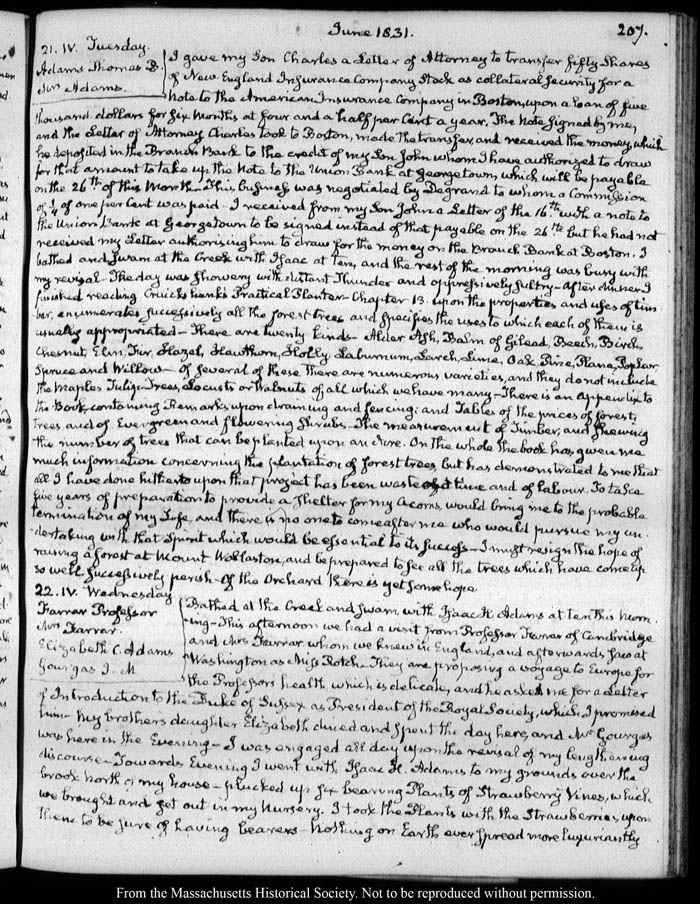 June 1831.
207.
21. IV. Tuesday.
Adams Thomas B.
Mrs Adams.
I gave my Son Charles a Letter of Attorney to transfer fifty Shares
of New England Insurance Company Stock as collateral Security for a
Note to the American Insurance Company in Boston, upon a Loan of five
thousand dollars for six Months at four and a half per Cent a year. The Note signed by me,
and the Letter of Attorney Charles took to Boston, made the transfer, and received the money, which
he deposited in the Branch Bank to the credit of my Son John whom I have authorized to draw
for that amount to take up the Note to the Union Bank at Georgetown, which will be payable
on the 26th of this Month. This business was negotiated by Degrand to whom a Commission
of 1/4 of one per Cent was paid. I received from my Son John a Letter of the 16th with a note to
the Union Bank at Georgetown to be signed instead of that payable on the 26th but he had not
received my Letter authorising him to draw for the money on the Branch Bank at Boston. I
bathed and swam at the Creek with Isaac at ten, and the rest of the morning was busy with
my revisal. The day was showery with distant Thunder and oppressively sultry. After dinner I
finished reading Cruickshank's Practical Planter. Chapter 13. upon the properties and uses of tim
ber, enumerates successively all the forest trees and specifies the uses to which each of them is
usually appropriated. There are twenty kinds. Alder, Ash, Balm of Gilead, Beech, Birch,
Chesnut, Elm, Fur, Hazel, Hawthorn, Holly, Laburnum, Larch, Lime, Oak, Pine, Plane, Poplar,
Spruce and Willow. Of several of these there are numerous varieties, and they do not include
the Maples, Tulip-Trees, Locusts or Walnuts of all which we have many. There is an Appendix to
the Book, containing Remarks upon draining and fencing; and Tables of the prices of forest,
trees and of Evergreen and flowering Shrubs. The measurement of Timber, and shewing
the number of trees that can be planted upon an Acre. On the whole the book has given me
much information concerning the plantation of forest trees, but has demonstrated to me that
all I have done hitherto upon that project has been waste of time and of labour. To take
five years of preparation to provide a shelter for my Acorns, would bring me to the probable
termination of my Life, and there is no one to come after me who would pursue my un-
-dertaking with that Spirit which would be essential to its success. I must resign the hope of
raising a forest at Mount Wollaston, and be prepared to see all the trees which have come up
so well successively perish. Of the Orchard there is yet some hope.
22. IV. Wednesday
Farrar Professor
Mrs Farrar.
Elizabeth C. Adams
Gourgas J. M
Bathed at the Creek and swam, with Isaac H. Adams at ten this morn-
-ing. This afternoon we had a visit from Professor Farrar of Cambridge
and Mrs Farrar whom we knew in England, and afterwards saw at
Washington as Miss Rotch. They are proposing a voyage to Europe for
the Professors health, which is delicate, and he asked me for a Letter
of Introduction to the Duke of Sussex as President of the Royal Society, which I promised
him. My brothers daughter Elizabeth dined and spent the day here, and Mr Gourgas
was here in the Evening. I was engaged all day upon the revisal of my lengthening
discourse. Towards Evening I went with Isaac H. Adams to my grounds over the
brook north of my house. plucked up six bearing Plants of Strawberry Vines, which
we brought and set out in my Nursery. I took the Plants with the Strawberries upon
them to be sure of having bearers. Nothing on Earth ever spread more luxuriantly
From the Massachusetts Historical Society. Not to be reproduced without permission.